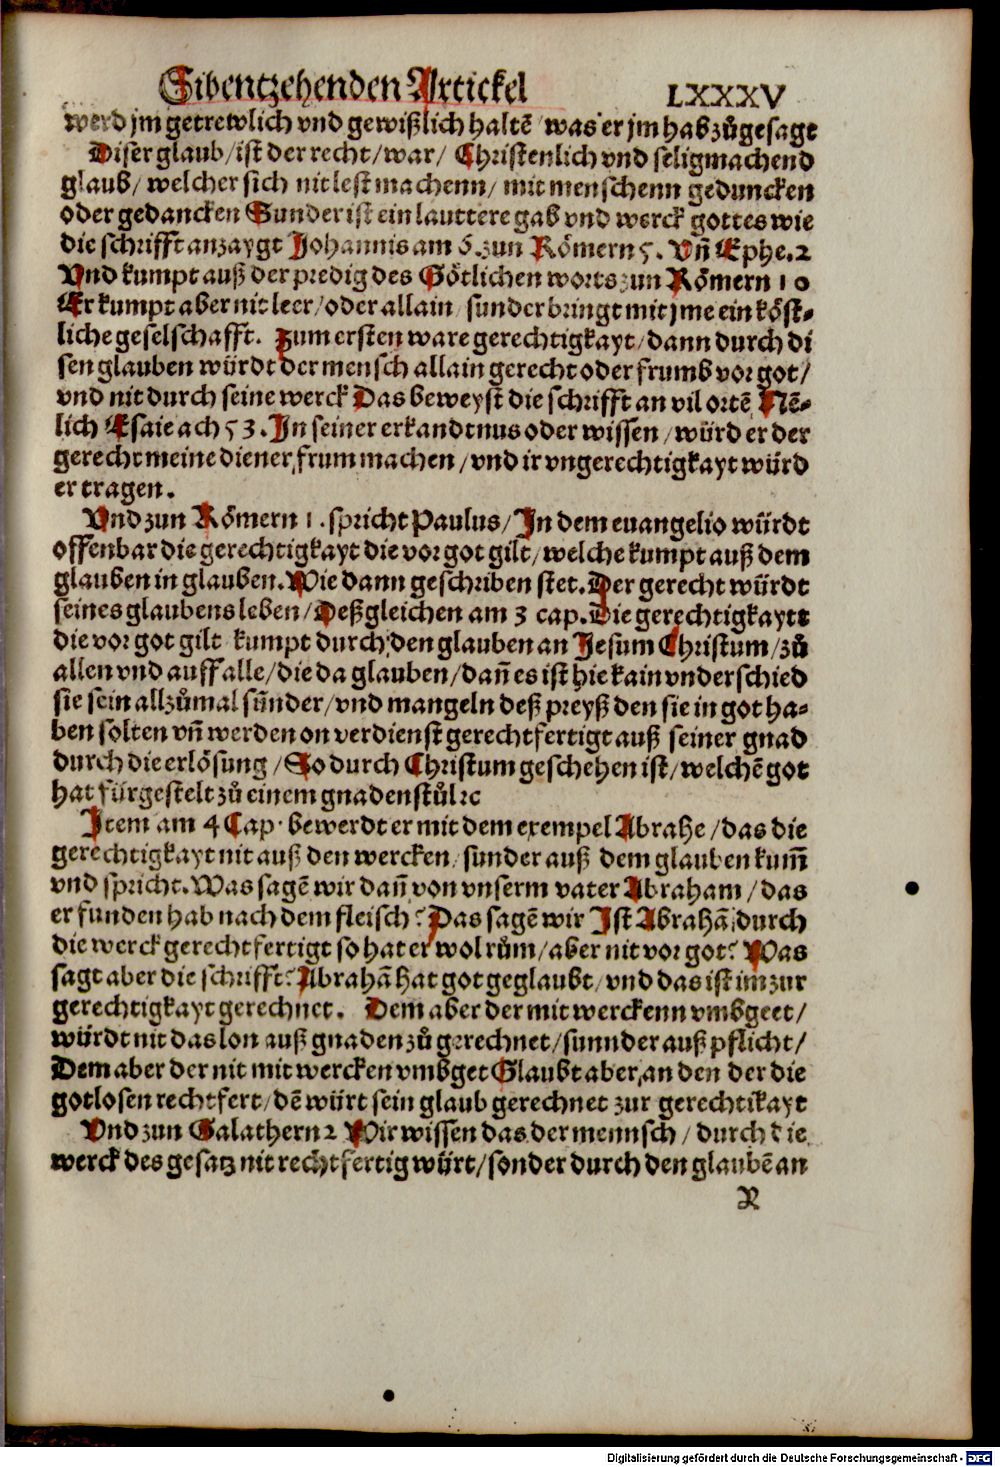 Sibentzehenden Artickel LXXXV
werd jm getrewlich vnd gewißlich haltē / was er jm hab zůgesagt
Diser glaub / ist der recht / war / Christenlich vnd seligmachend
glaub / welcher sich nit lest machenn / mit menschenn geduncken
oder gedancken Sunder ist ein lauttere gab vnd werck gottes wie
die schrifft anzaygt Johannis am 6. zun Römern 5. Vñ Ephe. 2
Vnd kumpt auß der predig des Götlichen worts zun Römern 10
Er kumpt aber nit leer / oder allain / sunder bringt mit jme ein köst-
liche geselschafft. Zum ersten ware gerechtigkayt / dann durch di
sen glauben würdt der mensch allain gerecht oder frumb vor got /
vnd nit durch seine werck Das beweyst die schrifft an vil ortē Nē-
lich Esaie ach 53. In seiner erkandtnus oder wissen / würd er der
gerecht meine diener, frum machen / vnd ir vngerechtigkayt würd
er tragen.
Vnd zun Römern 1. spricht Paulus / In dem euangelio würdt
offenbar die gerechtigkayt die vor got gilt / welche kumpt auß dem
glauben in glauben. Wie dann geschriben stet. Der gerecht würdt
seines glaubens leben / Deßgleichen am 3 cap. Die gerechtigkaytt
die vor got gilt kumpt durch den glauben an Jesum Christum / zů
allen vnd auff alle / die da glauben / dañ es ist hie kain vnderschied
sie sein allzůmal sünder / vnd mangeln deß preyß den sie in got ha-
ben solten vñ werden on verdienst gerechtfertigt auß seiner gnad
durch die erlösung / So durch Christum geschehen ist / welchē got
hat fürgestelt zů einem gnadenstůl ꝛc
Item am 4 Cap. bewerdt er mit dem exempel Abrahe / das die
gerechtigkayt nit auß den wercken / sunder auß dem glauben kum̄
vnd spricht. Was sagē wir dañ von vnserm vater Abraham / das
er funden hab nach dem fleisch? Das sagē wir Ist Abrahā durch
die werck gerechtfertigt so hat er wol rům / aber nit vor got? Was
sagt aber die schrifft? Abrahā hat got geglaubt / vnd das ist im zur
gerechtigkayt gerechnet. Dem aber der mit werckenn vmbgeet /
würdt nit das lon auß gnaden zů gerechnet / sunnder auß pflicht /
Dem aber der nit mit wercken vmbget Glaubt aber, an den der die
gotlosen rechtfert / dē würt sein glaub gerechnet zur gerechtikayt
Vnd zun Galathern 2 Wir wissen das der mennsch / durch die
werck des gesatz nit rechtfertig würt / sonder durch den glaubē an
R
Digitalisierung gefördert durch die Deutsche Forschungsgemeinschaft - DFG